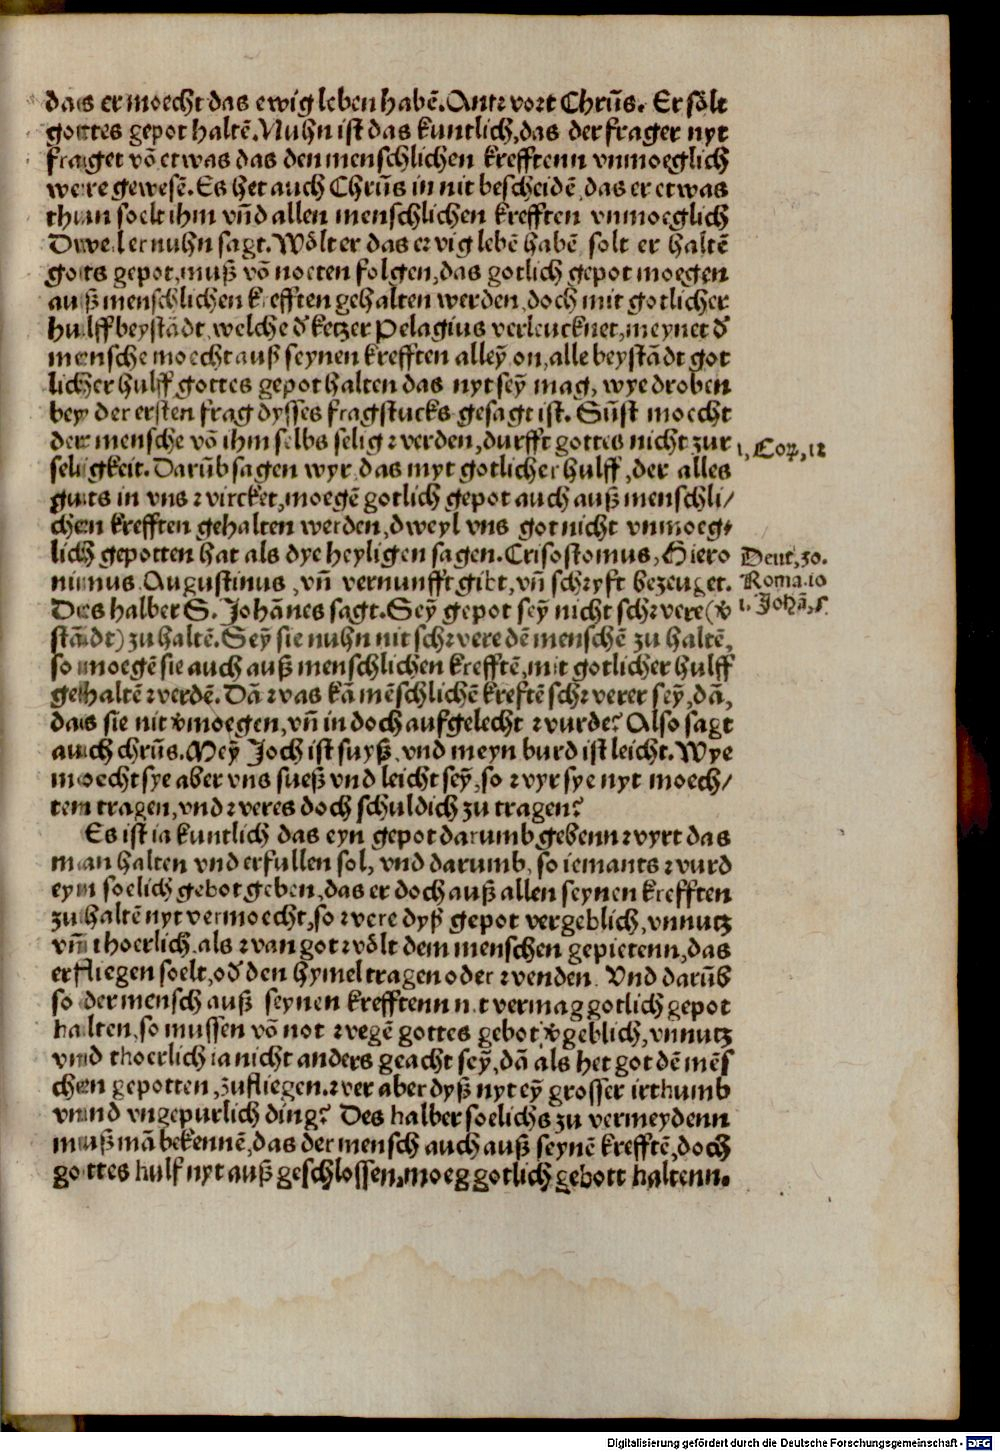 das er moecht das ewig leben habē. Antwort Chrūs. Er sölt
gottes gepot haltē. Nuhn ist das kuntlich, das der frager nyt
fraget vō etwas das den menschlichen krefftenn vnmoeglich
were gewesē. Es het auch Chrūs in nit bescheidē, das er etwas
thun soelt ihm vnd allen menschlichen krefften vnmoeglich
Dweil er nuhn sagt. Wölt er das ewig lebē habē solt er haltē
gots gepot, muß vō noeten folgen, das gotlich gepot moegen
auß menschlichen krefften gehalten werden, doch mit gotlicher
hulff beystādt, welche đ ketzer Pelagius verleucknet, meynet đ
mensche moecht auß seynen krefften alleȳ on, alle beystādt got
licher hulff gottes gepot halten das nyt seȳ mag, wye droben
bey der ersten frag dysses fragstucks gesagt ist. Sūst moecht
der mensche vō ihm selbs selig werden, durfft gottes nicht zur
seligkeit. Darūb sagen wyr das myt gotlicher hulff, der alles
1, Cor, 12
guts in vns wircket, moegē gotlich gepot auch auß menschli/
chen krefften gehalten werden, dweyl vns got nicht vnmoeg/
lich gepotten hat als dye heyligen sagen. Crisostomus, Hiero
Deut, 30.
nimus Augustinus, vn̄ vernunfft gibt, vn̄ schryft bezeuget.
Roma. 10
Des halber S. Johānes sagt. Seȳ gepot seȳ nicht schwere (v̄
1. Johā, 5
stādt) zu haltē. Seȳ sie nuhn nit schwere dē menschē zu haltē,
so moegē sie auch auß menschlichen krefftē, mit gotlicher hulff
gehaltē werdē. Dā was kā mēschlichē kreftē schwerer seȳ, dā,
das sie nit v̄moegen, vn̄ in doch aufgelecht wurde? Also sagt
auch chrūs. Meȳ Joch ist suyß, vnd meyn burd ist leicht. Wye
moecht sye aber vns sueß vnd leicht seȳ, so wyr sye nyt moech/
ten tragen, vnd weres doch schuldich zu tragen?
Es ist ia kuntlich das eyn gepot darumb gebenn wyrt das
man halten vnd erfullen sol, vnd darumb, so iemants wurd
eym soelich gebot geben, das er doch auß allen seynen krefften
zu haltē nyt vermoecht, so were dyß gepot vergeblich, vnnutz
vn̄ thoerlich, als wan got wölt dem menschen gepietenn, das
er fliegen soelt, ođ den hymel tragen oder wenden. Vnd darūb
so der mensch auß seynen krefftenn nit vermag gotlich gepot
halten, so mussen vō not wegē gottes gebot v̄geblich, vnnutz
vnd thoerlich ia nicht anders geacht seȳ, dā als het got dē mēs
chen gepotten, zufliegen. wer aber dyß nyt eȳ grosser irthumb
vnnd vngepurlich ding? Des halber soelichs zu vermeydenn
muß mā bekennē, das der mensch auch auß seynē krefftē, doch
gottes hulf nyt auß geschlossen, moeg gotlich gebott haltenn.
Digitalisierung gefördert durch die Deutsche Forschungsgemeinschaft - DFG